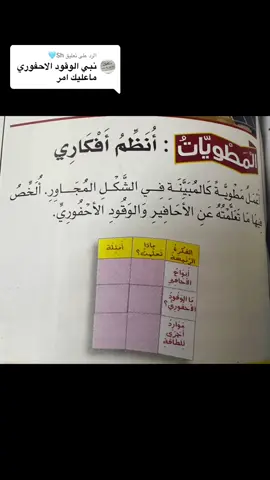 الرد على تعليق Sh🩵
نبي الوقود الاحفوري
ماعليك امر
المَطْوِيّاتُ : أُنَظِّمُ أَفْكَارِي
أَعْمَلُ مَطْوِيةً كَالمُبَيَّنَةِ فِي الشَّكْلِ المُجَاوِرِ. أُلَخِّصُ
فِيهَا مَا تَعَلَّمْتُهُ عَنِ الأَحَافِيرِ وَالوَقُودِ الأَحْفُورِيِّ.
الفكرة الرئيسة
ماذا تعلمت؟
أمثلة
أنواع الأحافير
ما الوقود الأحفوري؟
موارد أخرى للطاقة